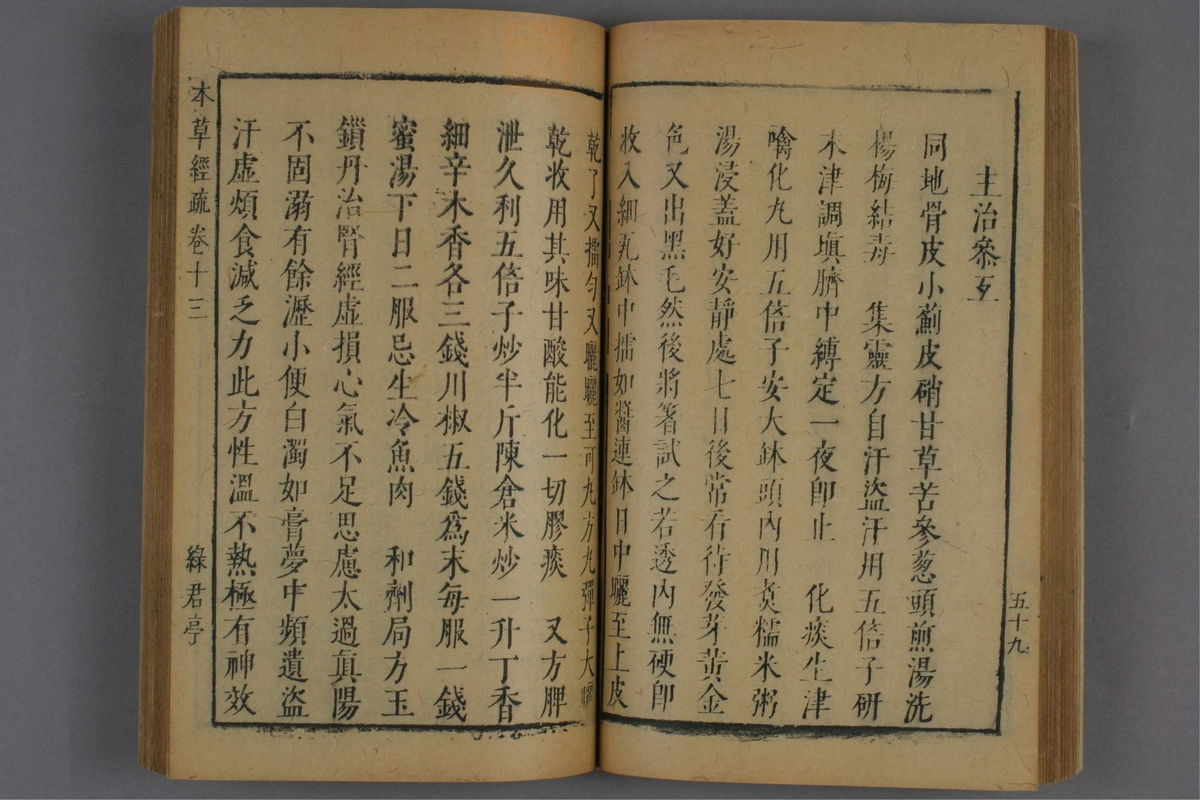 五十九
主治參互
同地骨皮小薊皮硝甘草苦參葱頭煎湯洗
楊梅結毒　集靈方自汗盜汗用五倍子研
末津調塡臍中縛定一夜卽止　化痰生津
噙化丸用五倍子安大鉢頭內用煑糯米粥
湯浸蓋好安靜處七日後常看待發芽黃金
色又出黑毛然後將箸試之若透內無硬卽
收入細乳鉢中擂如醬連鉢日中曬至上皮
乾了又擂勻又曬曬至可丸方丸彈子大曬
乾收用其味甘酸能化一切膠痰　又方脾
泄久利五倍子炒半斤陳倉米炒一升丁香
細辛木香各三錢川椒五錢爲末每服一錢
蜜湯下日二服忌生冷魚肉　和劑局方玉
鎖丹治腎經虛損心氣不足思慮太過眞陽
不固溺有餘瀝小便白濁如膏夢中頻遺盜
汗虛煩食減乏力此方性溫不熱極有神效
本草經疏 卷十三
綠君亭